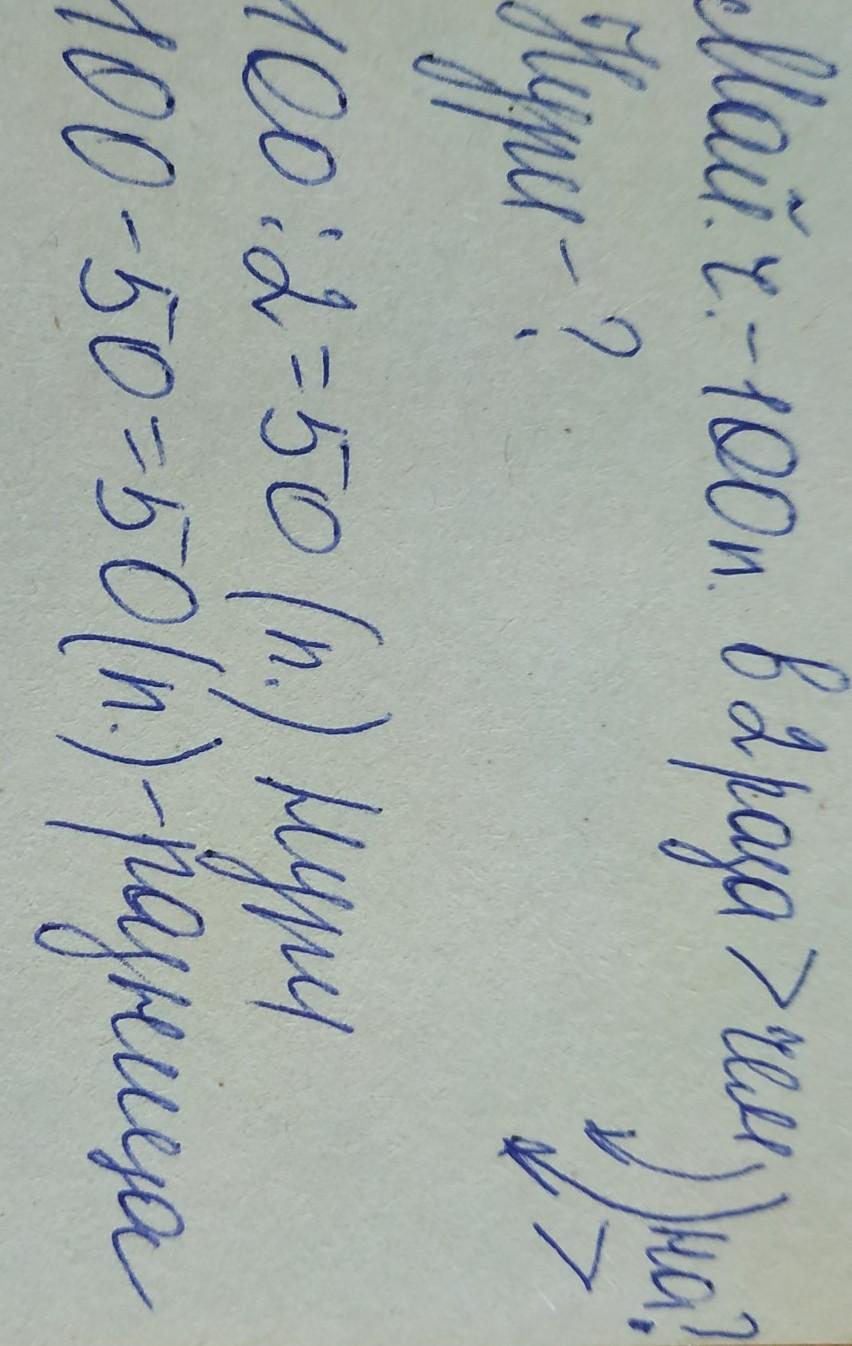 Май. ч. - 100 п. в 2 раза > чем на?
Нури - ? >
100 : 2 = 50 (п.) Нури
100 - 50 = 50 (п.) - разница